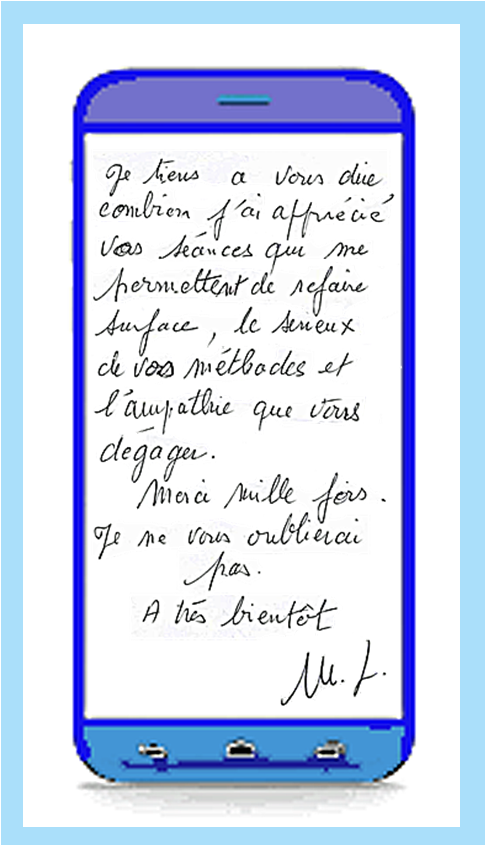 Je tiens a vous dire
combien j'ai apprécié
vos séances qui me
permettent de refaire
surface, le serieux
de vos méthodes et
l'ampathie que vous
dégager.
Merci mille fois.
Je ne vous oublierai
pas.
A très bientôt
M. L.